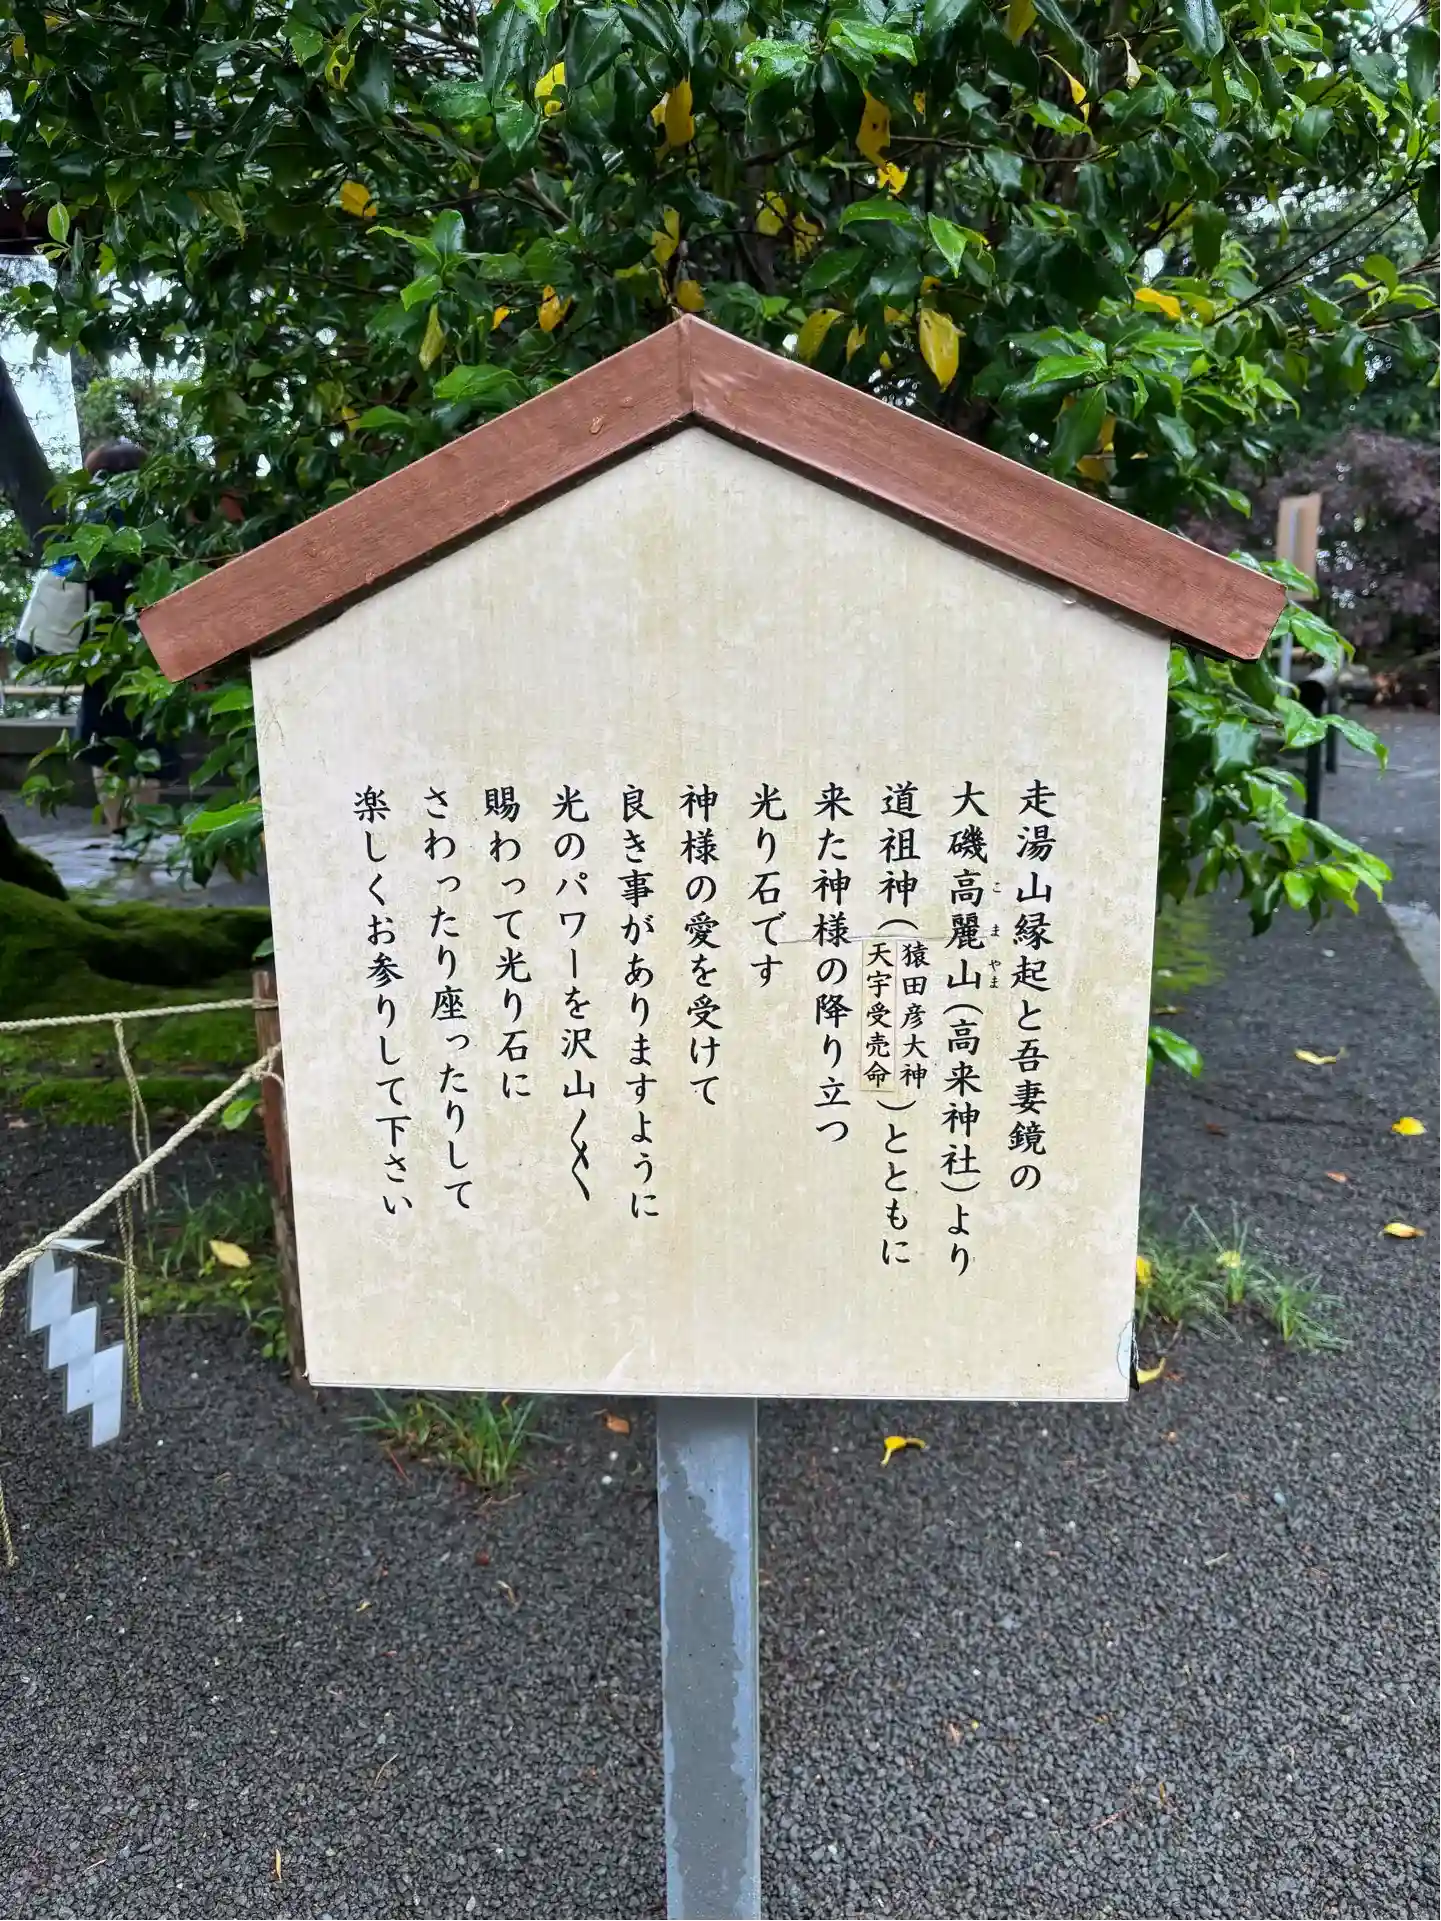 走湯山縁起と吾妻鏡の
大磯高麗山(高来神社)より
こまやま
道祖神(猿田彦大神
天宇受売命)とともに
来た神様の降り立つ
光り石です
神様の愛を受けて
良き事がありますように
光のパワーを沢山〱
賜わって光り石に
さわったり座ったりして
楽しくお参りして下さい